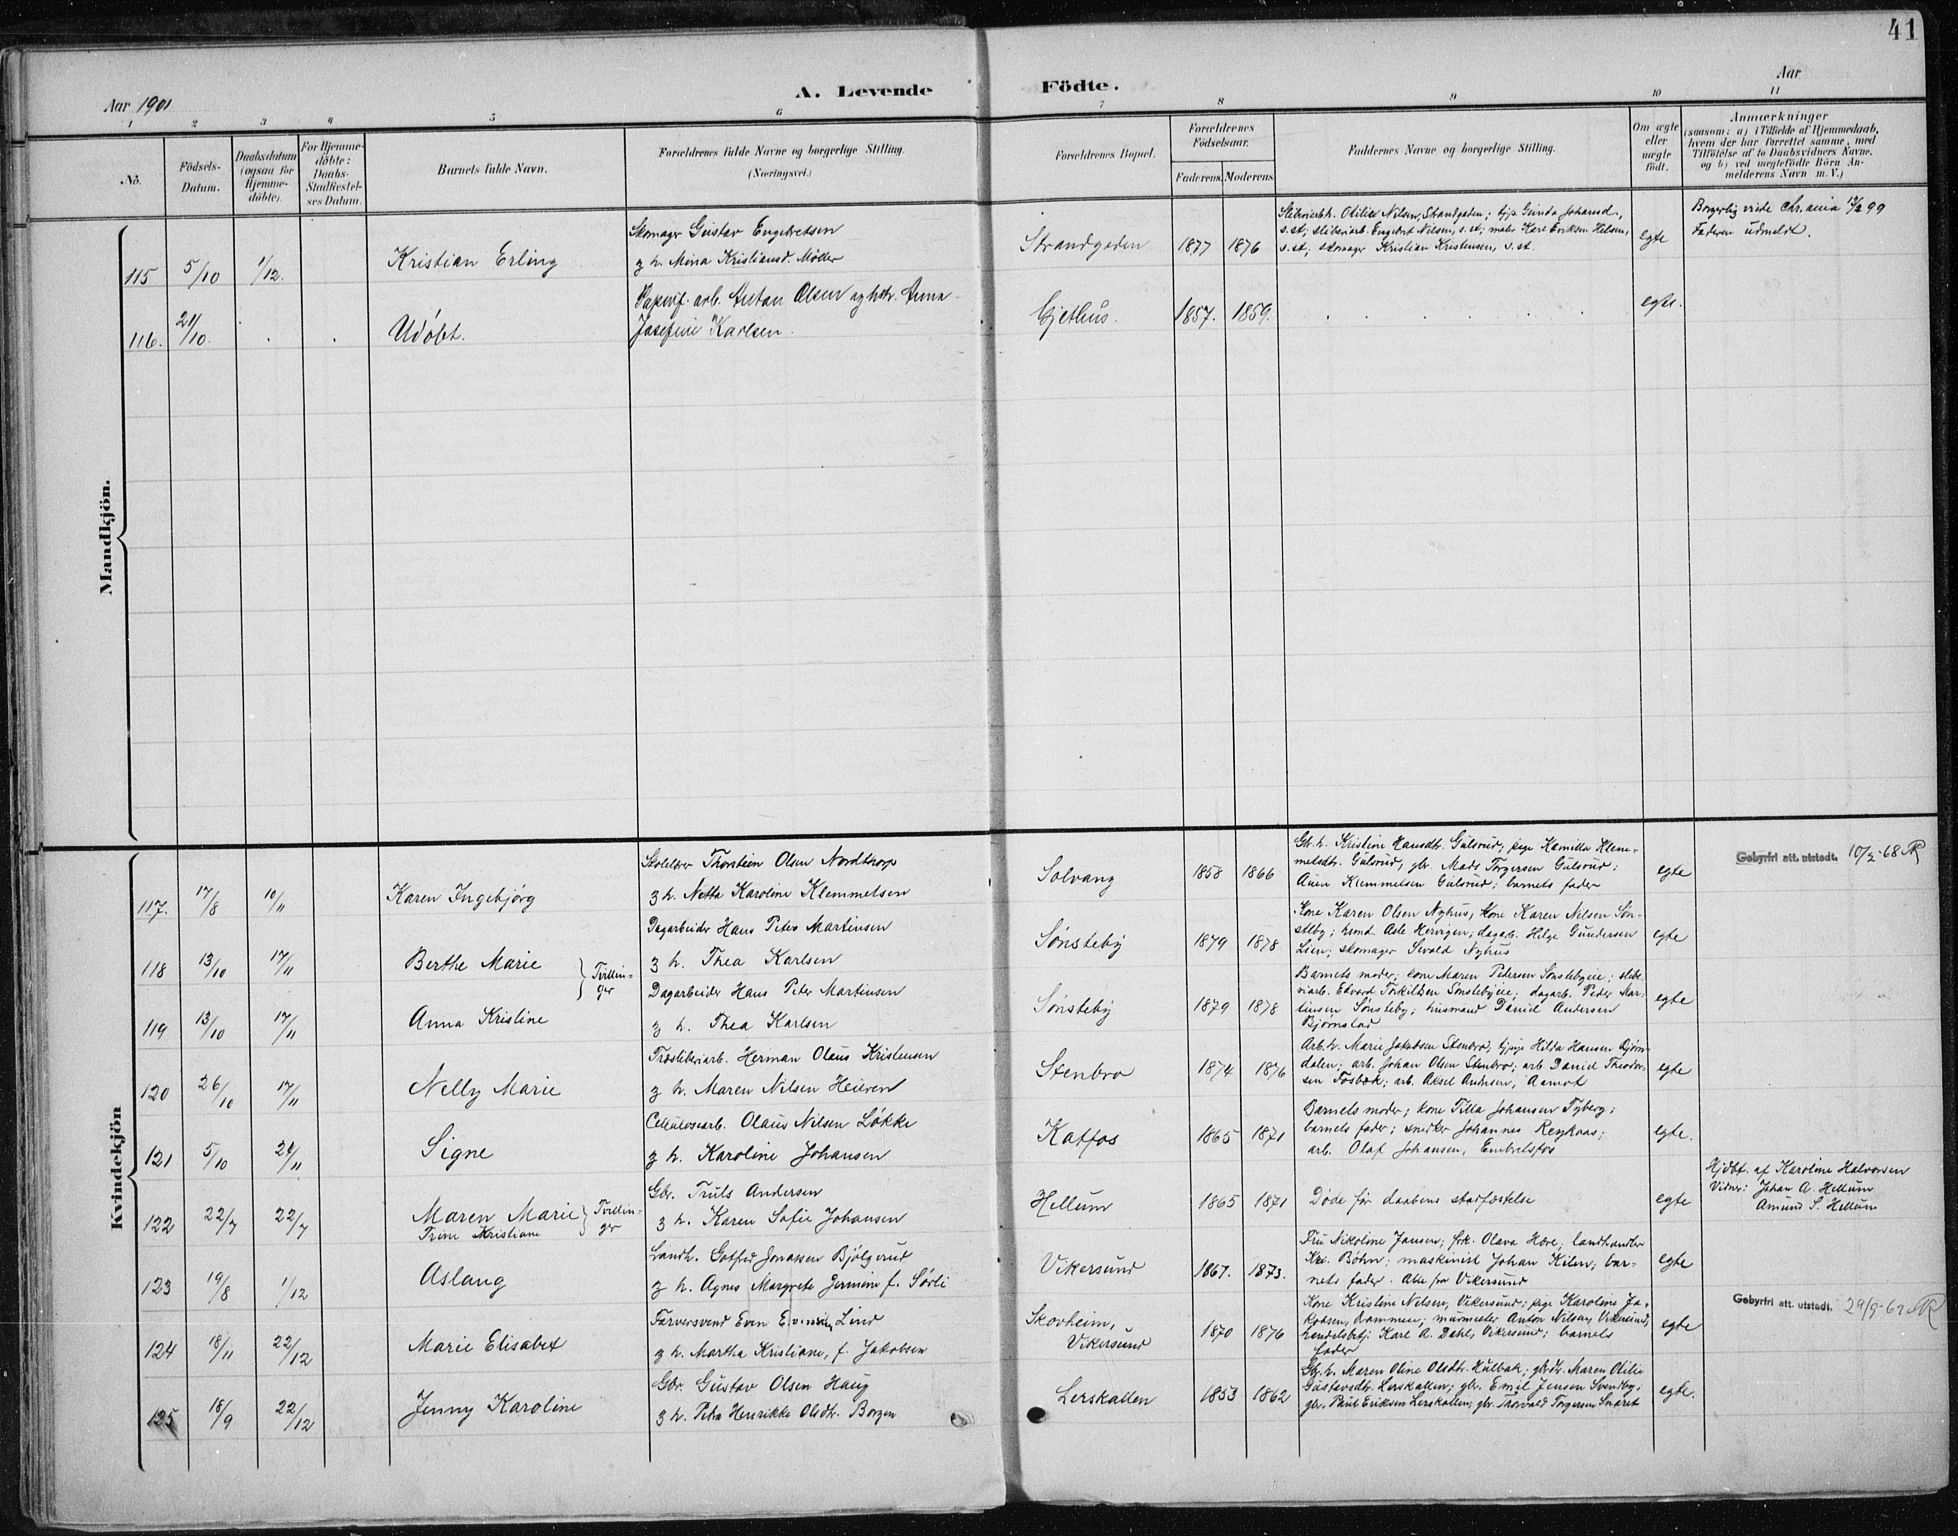 41
Aar 1901
A. Levende Födte.
Aar
1 2 3 4 5 6 7 8 9 10 11
No.
Födsels-
Datum.
Daabsdatum
(ogsaa for
Hjemme-
döbte).
For Hjemme-
döbte:
Daabs-
Stadfæstel-
ses Datum.
Barnets fulde Navn.
Forældrenes fulde Navne og borgerlige Stilling.
(Næringsvei.)
Forældrenes Bopæl.
Forældrenes
Födselsaar.
Faderens. Moderens.
Faddernes Navne og borgerlige Stilling.
Om ægte
eller
uægte
født.
Anmærkninger
(saasom: a) i Tilfælde af Hjemmedaab,
hvem der har forrettet samme, med
Tilföielse af to Daabsvidners Navne,
og b) ved uægtefödte Börn An-
melderens Navn m. V.)
Mandkjön.
115 5/10 1/12.
Kristian Erling
Skomager Gustav Engebretsen
g h. Mina Kristiansd. Møller
Strandgaden 1877 1876
Sliberiarb. Otilie Nilsen, Strandgaden; tjp. Gunda Johansd.,
s. st; sliberiarb. Engebret Nilsen, s. st; maler Karl Eriksen
s. st; skomager Kristian Kristensen, s. st.
egte
Borgerlig viede Chr.ania 99
Faderen udmeldt.
116. 21/10. . .
Udøbt.
Papirf. arb. Anton Olsen og hstr. Anna
Josefine Karlsen.
Gjethus. 1857. 1859.
egte.
Kvindekjön
117. 17/8 10/11
Karen Ingebjørg
Skolelær Thorstein Olsen Nordtorp
g h. Netta Karoline Klemmetsen
Solvang 1858 1866
Gb. h. Kristine Hansdt. Gulsrud, pige Kamilla Klem-
metsdt. Gulsrud, gbr. Mads Torgersen Gulsrud;
Klemmetsen Gulsrud; barnets fader
egte
Gebyrfri att. utstedt. 10/2-68
118 13/10 17/11
Berthe Marie
Tvillin-
ger
Dagarbeider Hans Peter Martinsen
g h. Thea Karlsen
Sønsteby 1879 1878
Kone Karen Olsen Nyhus, kone Karen Nilsen Søn-
steby; dagarb. Helge Gundersen
Lien; skomager Sevald Nyhus
egte
119 13/10 17/11
Anna Kristine
Dagarbeider Hans Peter Martinsen
g h. Thea Karlsen
Sønsteby 1879 1878
Barnets moder; kone Maren Petersen Sønstebyeie; slibe-
riarb. Edvard Torkildsen Sønstebyeie; dagarb. Peder Mar-
tinsen Sønsteby; husmand Daniel Andersen
Bjørnstad
egte
120 26/10 17/11
Nelly Marie
Træsliberiarb. Herman Olaus Kristensen
g h. Maren Nilsen Heieren
Stenbro 1874 1876
Arb. h. Marie Jakobsen Stenbro, tjpige Hilda Hansen
dalen; arb. Johan Olsen Stenbro; arb Daniel Theodor-
sen Fosbæk; arb. Aksel Andersen, Aamot
egte
121 5/10 24/11
Signe
Cellulosearb. Olaus Nilsen Løkke
g h. Karoline Johansen
Katfos 1865 1871
Barnets moder; kone Tilla Johansen Tyberg;
barnets fader; snedker Johannes
arb. Olaf Johansen, Embretsfos
egte.
122 22/7 22/7
Maren Marie
Trine Kristiane
Tvillin-
ger
Gbr. Truls Andersen
g h. Karen Sofie Johansen
Hellum 1865 1871
Døde før daabens stadfæstelse
egte
Hjdbt. af Karoline Halvorsen
Vidner: Johan A. Hellum
Amund S. Hellum
123 19/8 1/12
Aslaug
Landh. Gotfred Jonassen Bjølgerud
g h. Agnes Margrete f. Sørli
Vikersund 1867. 1873.
Fru Nikoline Jansen; frk. Olava Hære; landhandler
Kr. Bøhn; maskinist Johan Kilen; bar-
nets fader. Alle fra Vikersund
egte
124 18/11 22/12
Marie Elisabet
Farversvend Even Evensen Lind
g h. Martha Kristiane, f. Jakobsen
Skovheim,
Vikersund
1870 1876
Kone Kristine Nilsen, Vikersund; pige Karoline Ja-
kobsen, Drammen; murmester Anton Nilsen, Vikersund,
handelsbetj. Karl A. Dahl, Vikersund; barnets
fader
egte
Gebyrfri att. utstedt. 29/9-67
125 18/9 22/12
Jenny Karoline
Gbr. Gustav Olsen Haug
g h. Petra Henrikke Olsdt. Borgen
Lerskallen 1853 1862
Gb. h. Maren Oline Olsdtr. Hulbak; gbdtr. Maren Otilie
Gustavsdt. Lerskallen; gbr. Emil Jensen Svendby;
gbr. Paul Eriksen Lerskallen; gbr. Thorvald Torgersen Snaret
egte.